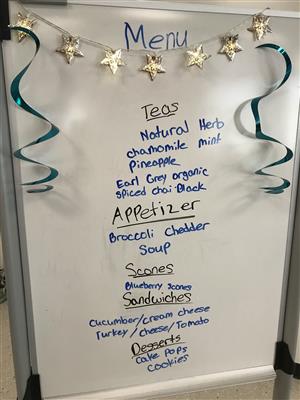 Menu
Teas
Natural Herb
chamomile mint
pineapple
Earl Grey organic
spiced chai Black
Appetizer
Broccoli Chedder
Soup
Scones
Blueberry scones
Sandwiches
cucumber/cream cheese
Turkey/cheese/Tomato
Desserts
Cake Pops
cookies